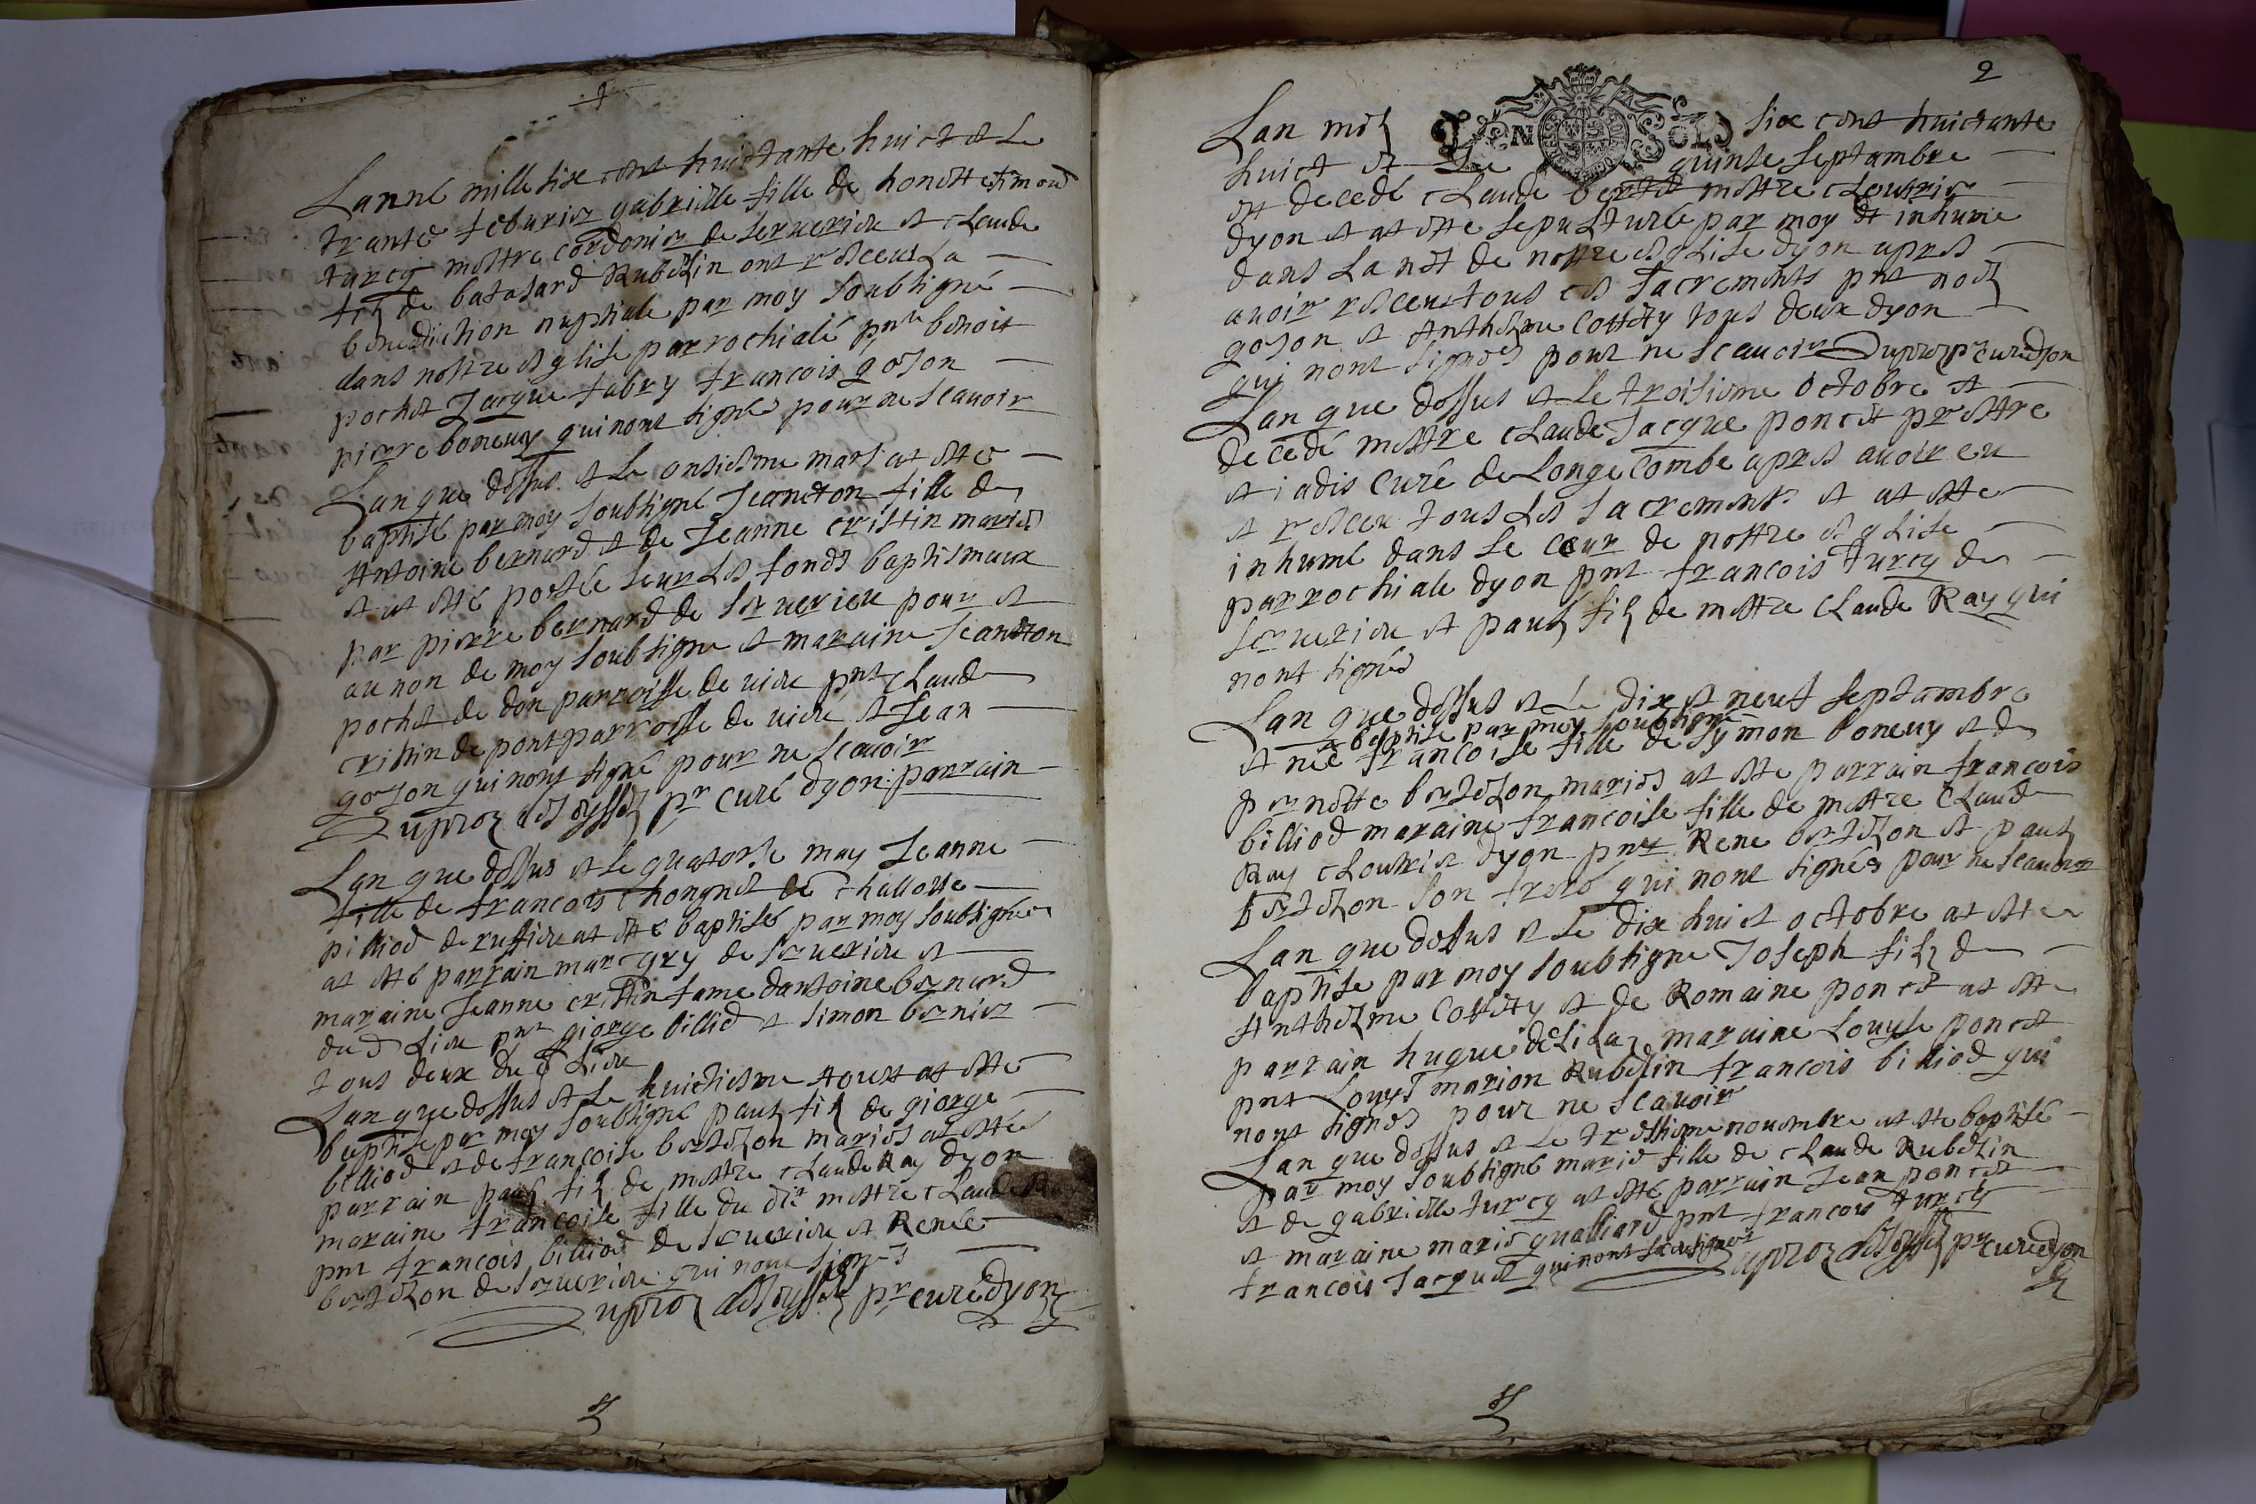 Lanné mille six cent huictante huict et le
trante feburier gabrielle fille de honeste
turcq mestre cordonier de serverieu et claude
filz de batasard Rubelin ont resceu la
benediction nuptiale par moy soubsigné
dans nostre esglise parrochiale pnt benoit
pochet Jacque fabry francois goion
pierre boneuy qui nont signés pour ne scauoir
Lan que dessus et le onsiesme mars at este
baptisé par moy soubsigné Jeaneton fille de
Antoine bernard et de Jeanne cristin maries
et at esté portée seur les fonds baptismaux
par pierre bernard de serverieu pour et
au non de moy soubsigne et maraine Jeaneton
pochet de don parroisse de uieu pnt Claude
cristin de pont parroisse de uieu et Jean
goion qui nont signé pour ne scauoir
Duproz pr curé dyon parrain
Lan que dessus et le quatorse may Jeanne
fille de francois Chongnet de challosse
pilliod de ruffieu at esté baptisée par moy soubsigné
at esté parrain marc gry de serverieu et
maraine Jeanne cristin fame dantoine bernard
dud Lieu pnt giorge billiod et simon bernier
tous deux dud Lieu
Lan que dessus et Le huictiesme Aoust at esté
baptise par moy soubsigné paul filz de giorge
billiod et de francoise bertelon maries at esté
parrain paul filz de mestre claude Ray dyon
maraine francoise fille du dit mestre claude Ray
pnt francois billiod de serverieu et Renée
bertelon de serverieu qui nont signés
Duproz pr curé dyon
2
Lan mil UN SOL six cent huictante
huict et Le quinse septambre
est decedé claude mestre
dyon et at este sepulturé par moy et inhumé
dans La nef de nostre esglise dyon apres
auoir resceu tous les sacrements pnt noel
goion et Anthelme Cottety tous deux dyon
qui nont signes pour ne scauoir Duproz pr curé dyon
Lan que dessus et le troisieme octobre et
decedé mestre claude Jacque poncet prestre
et iadis curé de Longecombe apres auoir eu
et resceu tous les sacrements et at este
inhumé dans le ceur de nostre esglise
parrochiale dyon pnt francois turcq de
serverieu et paul filz de mestre claude Ray qui
nont signés
Lan que dessus et Le dix et neuf septambre
a baptise par moy soubsigné
et née francoise fille de symon boneuy et de
pernette bertelon maries at este parrain francois
billiod maraine francoise fille de mestre Claude
Ray dyon pnt Rene bertelon et paul
bertelon son frere qui nont signés pour ne scauoir
Lan que dessus et Le dix huict octobre at este
baptise par moy soubsigne Joseph filz de
Anthelme Cottety et de Romaine poncet at este
parrain hugue maraine Louyse poncet
pnt Louys marion Rubelin francois billiod qui
nont signes pour ne scauoir
Lan que dessus et Le nouembre at este baptisé
par moy soubsigné marie fille de claude Rubelin
et de gabrielle turcq at esté parrain Jean poncet
et maraine marie gualliard pnt francois turcq
francois Jacquet qui nont Duproz pr curé dyon